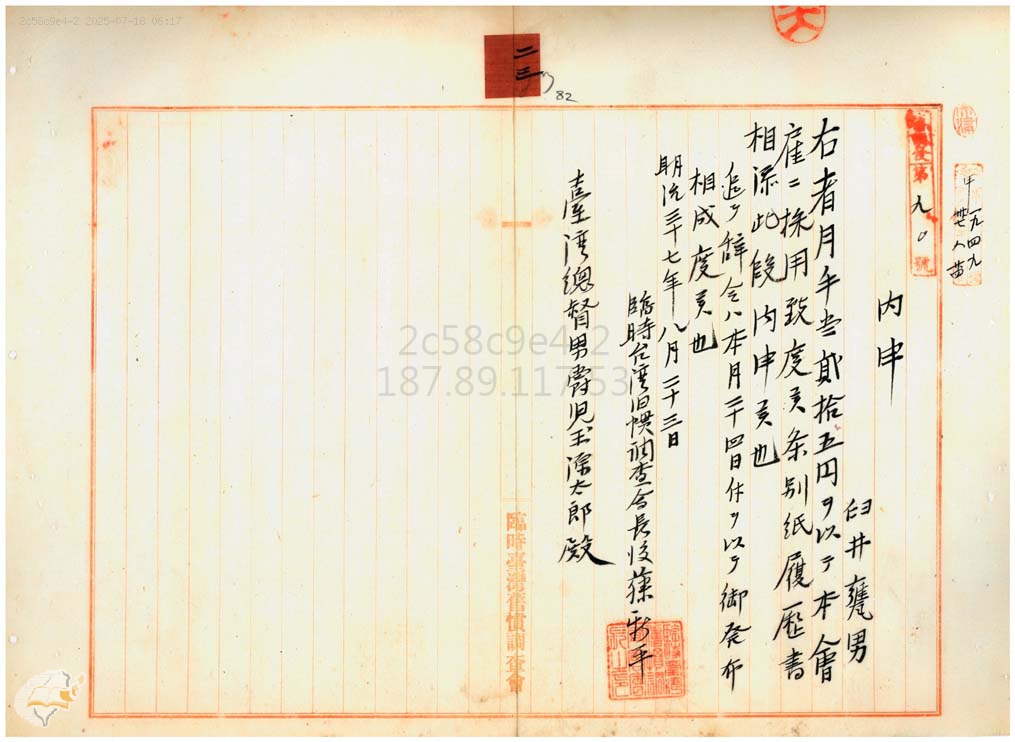 2c58c9e4-2 2025-07-18 06:17
二三
82
第九〇號
一九四九
内申
臼井甕男
右者月手当貳拾五円ヲ以テ本會
雇ニ採用致度候条別紙履歴書
相添此段内申候也
追テ辞令ハ本月二十四日付ヲ以テ御発布
相成度候也
明治三十七年八月二十三日
臨時台湾旧慣調査会長後藤新平
臺湾總督男爵児玉源太郎殿
臨時臺灣舊慣調査會
2c58c9e4-2
187.89.117.53